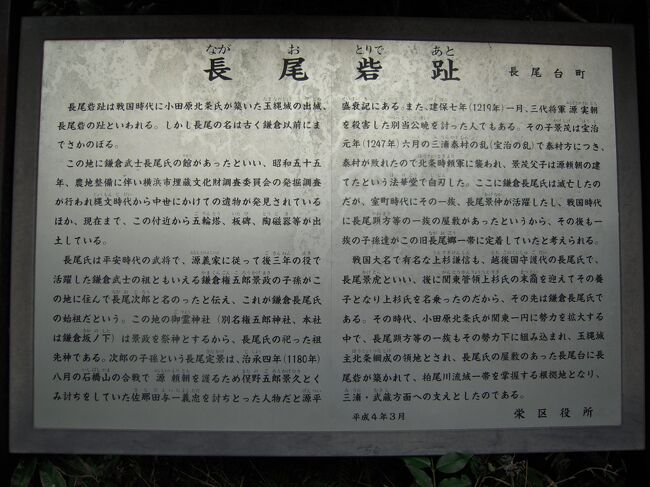 長尾砦趾
ながおとりであと
長尾台町
長尾砦趾は戦国時代に小田原北条氏が築いた玉縄城の出城、
長尾砦の趾といわれる。しかし長尾の名は古く鎌倉以前にま
でさかのぼる。
この地に鎌倉武士長尾氏の館があったといい、昭和五十五
年、農地整備に伴い横浜市埋蔵文化財調査委員会の発掘調査
が行われ縄文時代から中世にかけての遺物が発見されている
ほか、現在まで、この付近から五輪塔、板碑、陶磁器等が出
土している。
長尾氏は平安時代の武将で、源義家に従って後三年の役で
活躍した鎌倉武士の祖ともいえる鎌倉権五郎景政の子孫がこ
の地に住んで長尾次郎と名のったと伝え、これが鎌倉長尾氏
の始祖だという。この地の御霊神社(別名権五郎神社、本社
は鎌倉坂ノ下)は景政を祭神とするから、長尾氏の祀った祖
先神である。次郎の子孫という長尾定景は、治承四年(1180年)
八月の石橋山の合戦で源頼朝を護るため俣野五郎景久とく
み討ちをしていた佐那田与一義忠を討ちとった人物だと源平
盛衰記にある。また、建保七年(1219年)一月、三代将軍源実朝
を殺害した別当公暁を討った人でもある。その子景茂は宝治
元年(1247年)六月の三浦泰村の乱(宝治の乱)で泰村方につき、
泰村が敗れたので北条時頼軍に襲われ、景茂父子は源頼朝の建
てたという法華堂で自刃した。ここに鎌倉長尾氏は滅亡したの
だが、室町時代にその一族、長尾景仲が活躍したし、戦国時代
に長尾顕方等の一族の屋敷があったというから、その後も一
族の子孫達がこの旧長尾郷一帯に定着していたと考えられる。
戦国大名で有名な上杉謙信も、越後国守護代の長尾氏で、
長尾景虎といい、後に関東管領上杉氏の末裔を迎えてその養
子となり上杉氏を名乗ったのだから、その先は鎌倉長尾氏で
ある。その時代、小田原北条氏が関東一円に勢力を拡大する
中で、長尾顕方等の一族もその勢力下に組み込まれ、玉縄城
主北条綱成の領地とされ、長尾氏の屋敷のあった長尾台に長
尾砦が築かれて、柏尾川流域一帯を掌握する根拠地となり、
三浦・武蔵方面への支えとしたのである。
平成4年3月
栄区役所